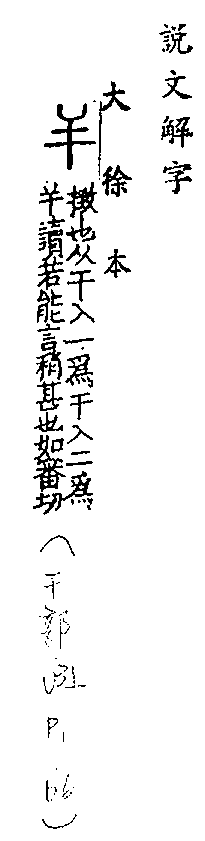 說文解字
大徐本
𢆉
撖也从干入一爲干入二爲
𢆉讀若能言稍甚也如審切
（干 P1